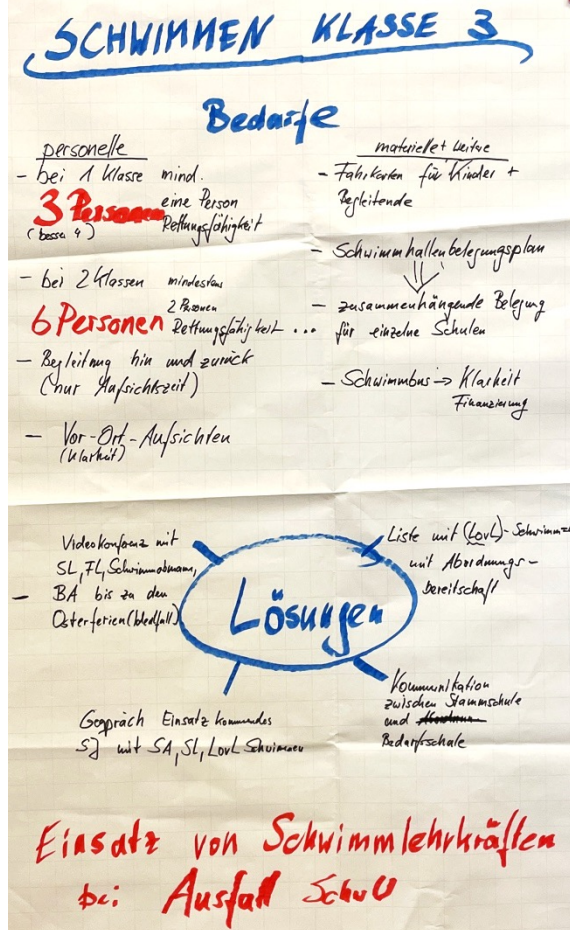 SCHWIMMEN KLASSE 3
Bedarfe
personelle
- bei 1 Klasse mind.
3 Personen eine Person
(besser 4) Rettungsfähigkeit
- bei 2 Klassen mindestens
6 Personen 2 Personen
Rettungsfähigkeit ...
- Begleitung hin und zurück
(nur Aufsichtszeit)
- Vor-Ort-Aufsichten
(Klarheit)
materielle + weitere
- Fahrkarten für Kinder +
Begleitende
- Schwimmhallenbelegungsplan
- zusammenhängende Belegung
für einzelne Schulen
- Schwimmbus → Klarheit
Finanzierung
Lösungen
Videokonferenz mit
SL, FL, Schwimmobmann,
- BA bis zu den
Osterferien (bedfall)
Liste mit (LovL)-Schwimm
mit Abordnungs-
bereitschaft
Gespräch Einsatz kommendes
SJ mit SA, SL, LovL Schwimmen
Kommunikation
zwischen Stammschule
und
Bedarfsschule
Einsatz von Schwimmlehrkräften
bei Ausfall SchwU